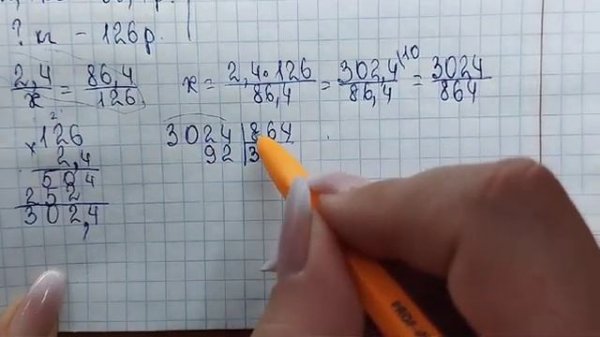 ? кг – 126 р.
2,4/x = 86,4/126 x = 2,4·126/86,4 = 302,4/86,4 (10 = 3024/864
2
×126
2,4
504
252
302,4
3024 | 864
92 | 3